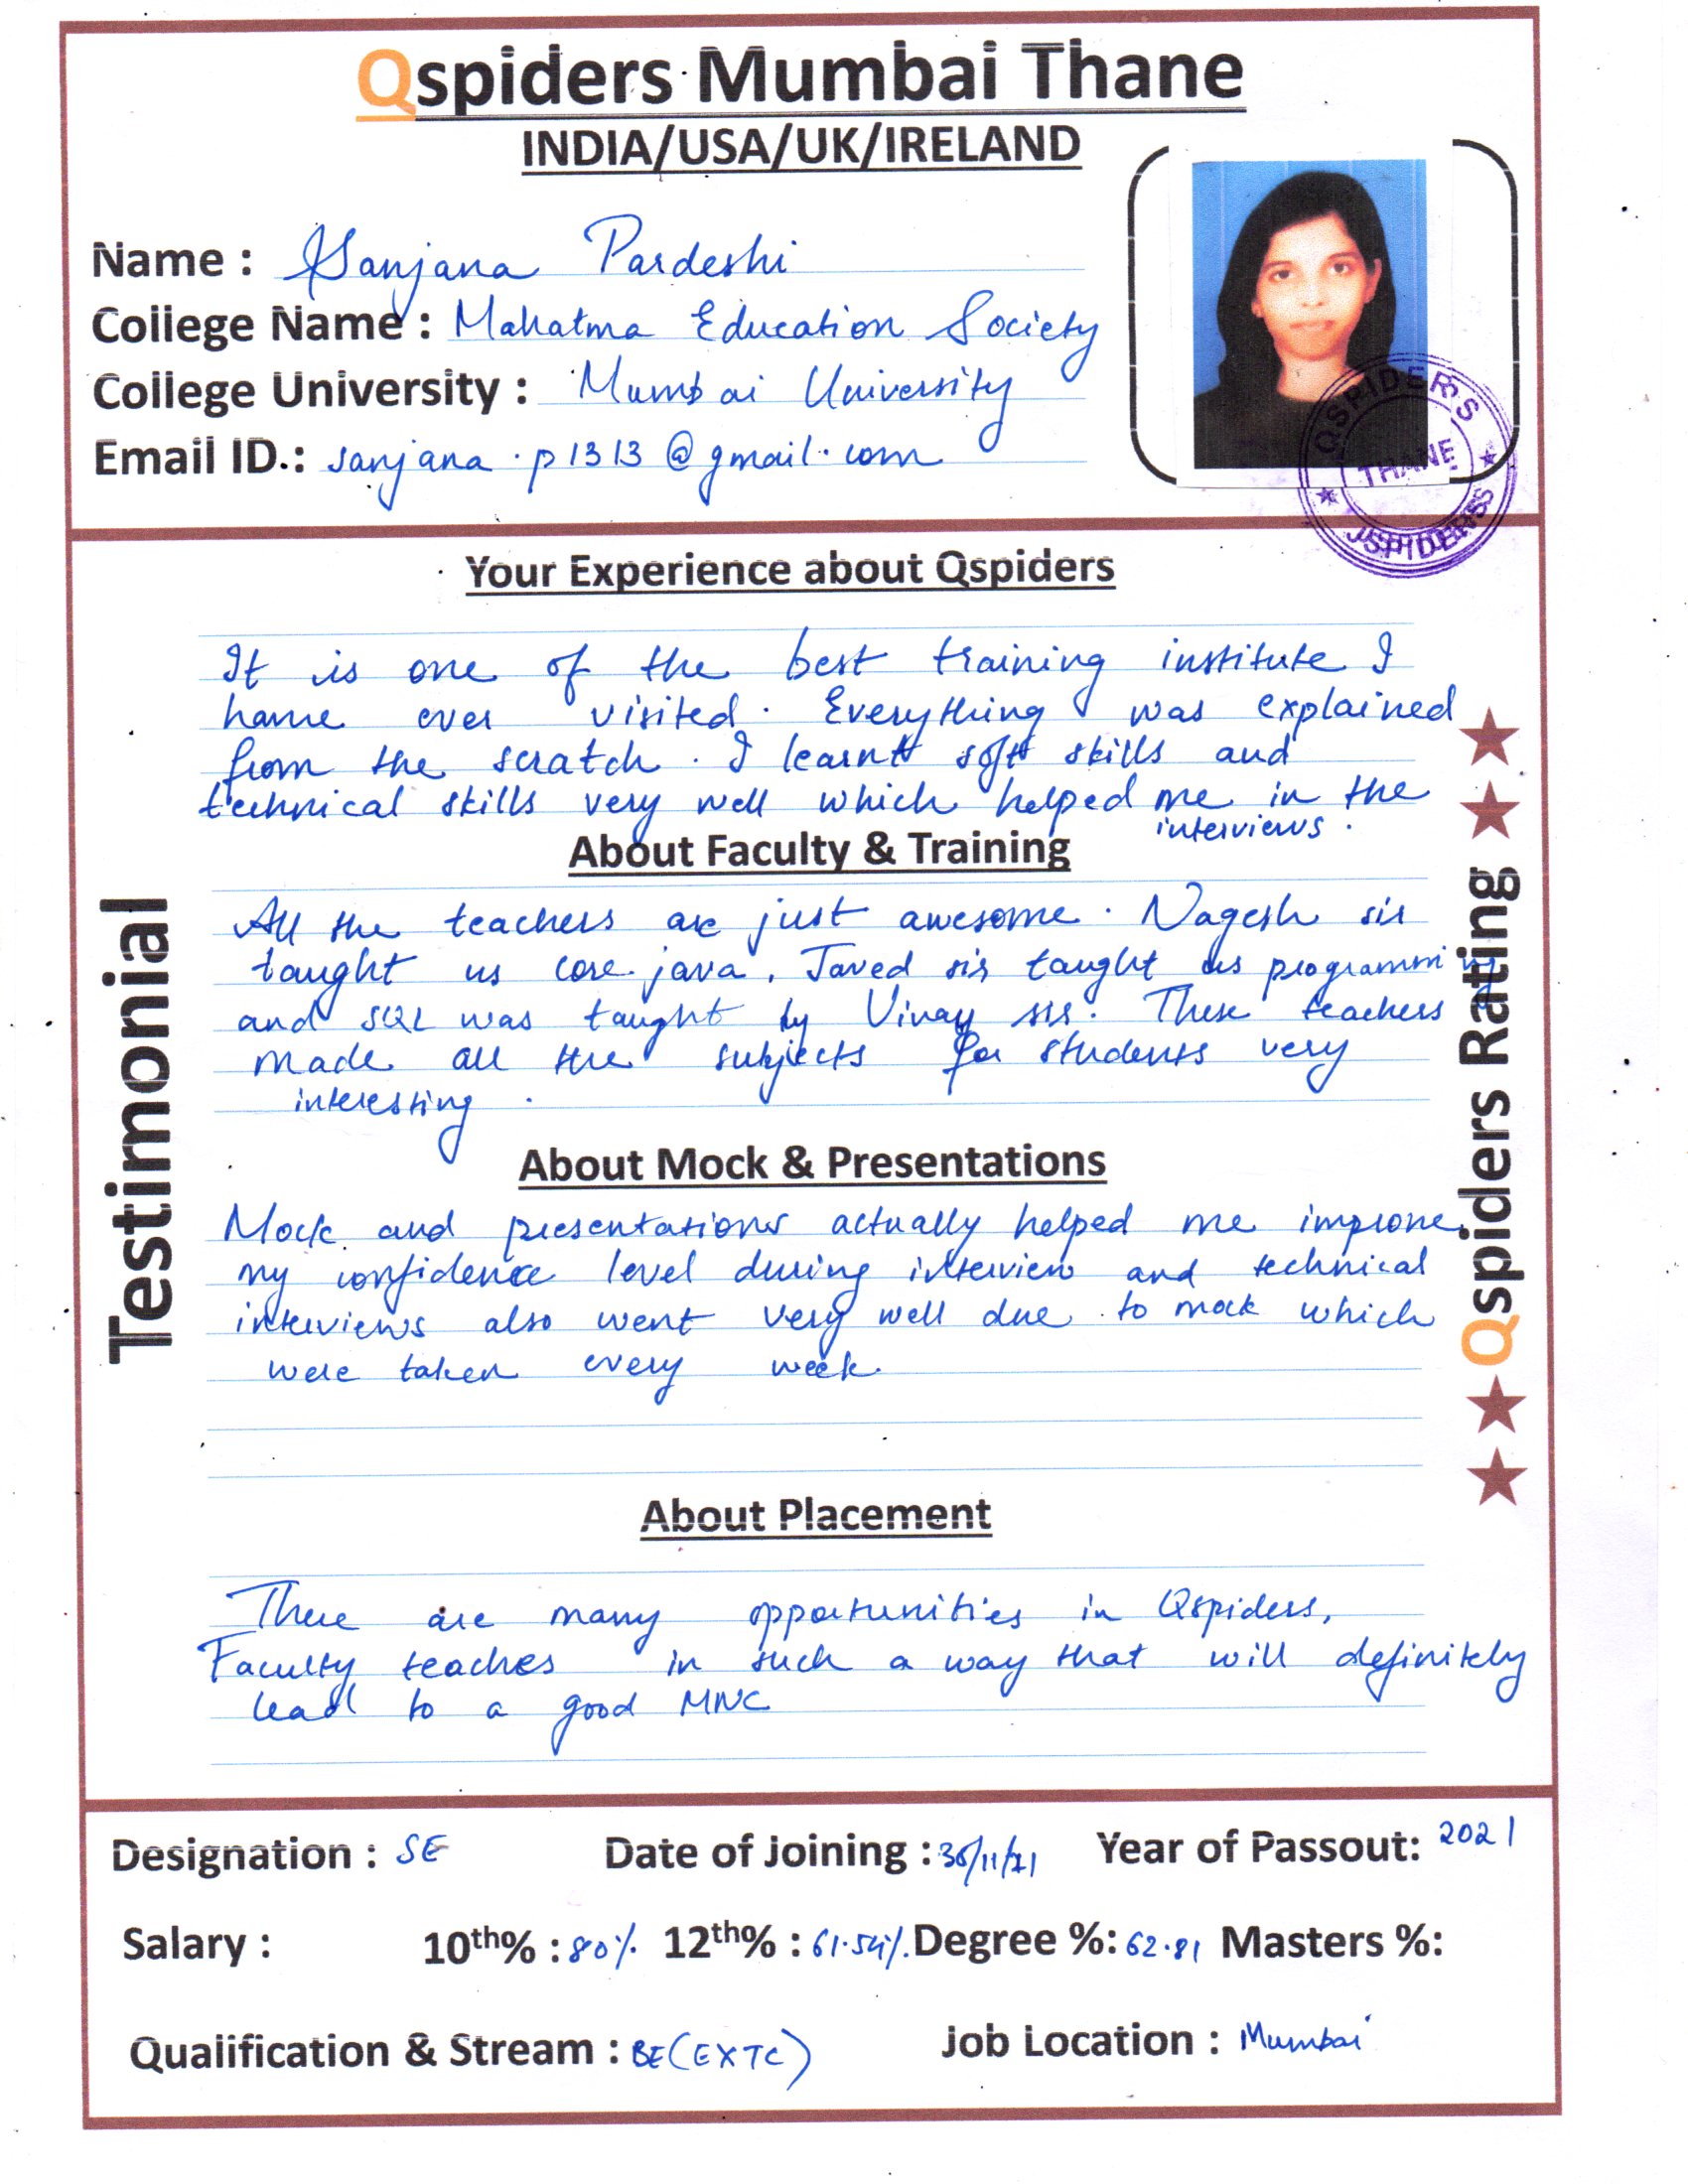 Qspiders Mumbai Thane
INDIA/USA/UK/IRELAND
Name : Sanjana Pardeshi
College Name : Mahatma Education Society
College University : Mumbai University
Email ID.: sanjana.p1313@gmail.com
QSPIDERS
THANE
JSPIDERS
Your Experience about Qspiders
It is one of the best training institute I
have ever visited. Everything was explained
from the scratch. I learnt soft skills and
technical skills very well which helped me in the
interviews.
About Faculty & Training
All the teachers are just awesome. Nagesh sir
taught us core java. Javed sir taught us programming
and SQL was taught by Vinay sir. These teachers
made all the subjects for students very
interesting.
About Mock & Presentations
Mock and presentations actually helped me improve
my confidence level during interview and technical
interviews also went very well due to mock which
were taken every week.
About Placement
There are many opportunities in Qspiders,
Faculty teaches in such a way that will definitely
lead to a good MNC
Testimonial
Qspiders Rating
Designation : SE Date of Joining : 30/11/21 Year of Passout: 2021
Salary : 10th% : 80% 12th% : 61.54% Degree %: 62.81 Masters %:
Qualification & Stream : BE(EXTC) Job Location : Mumbai